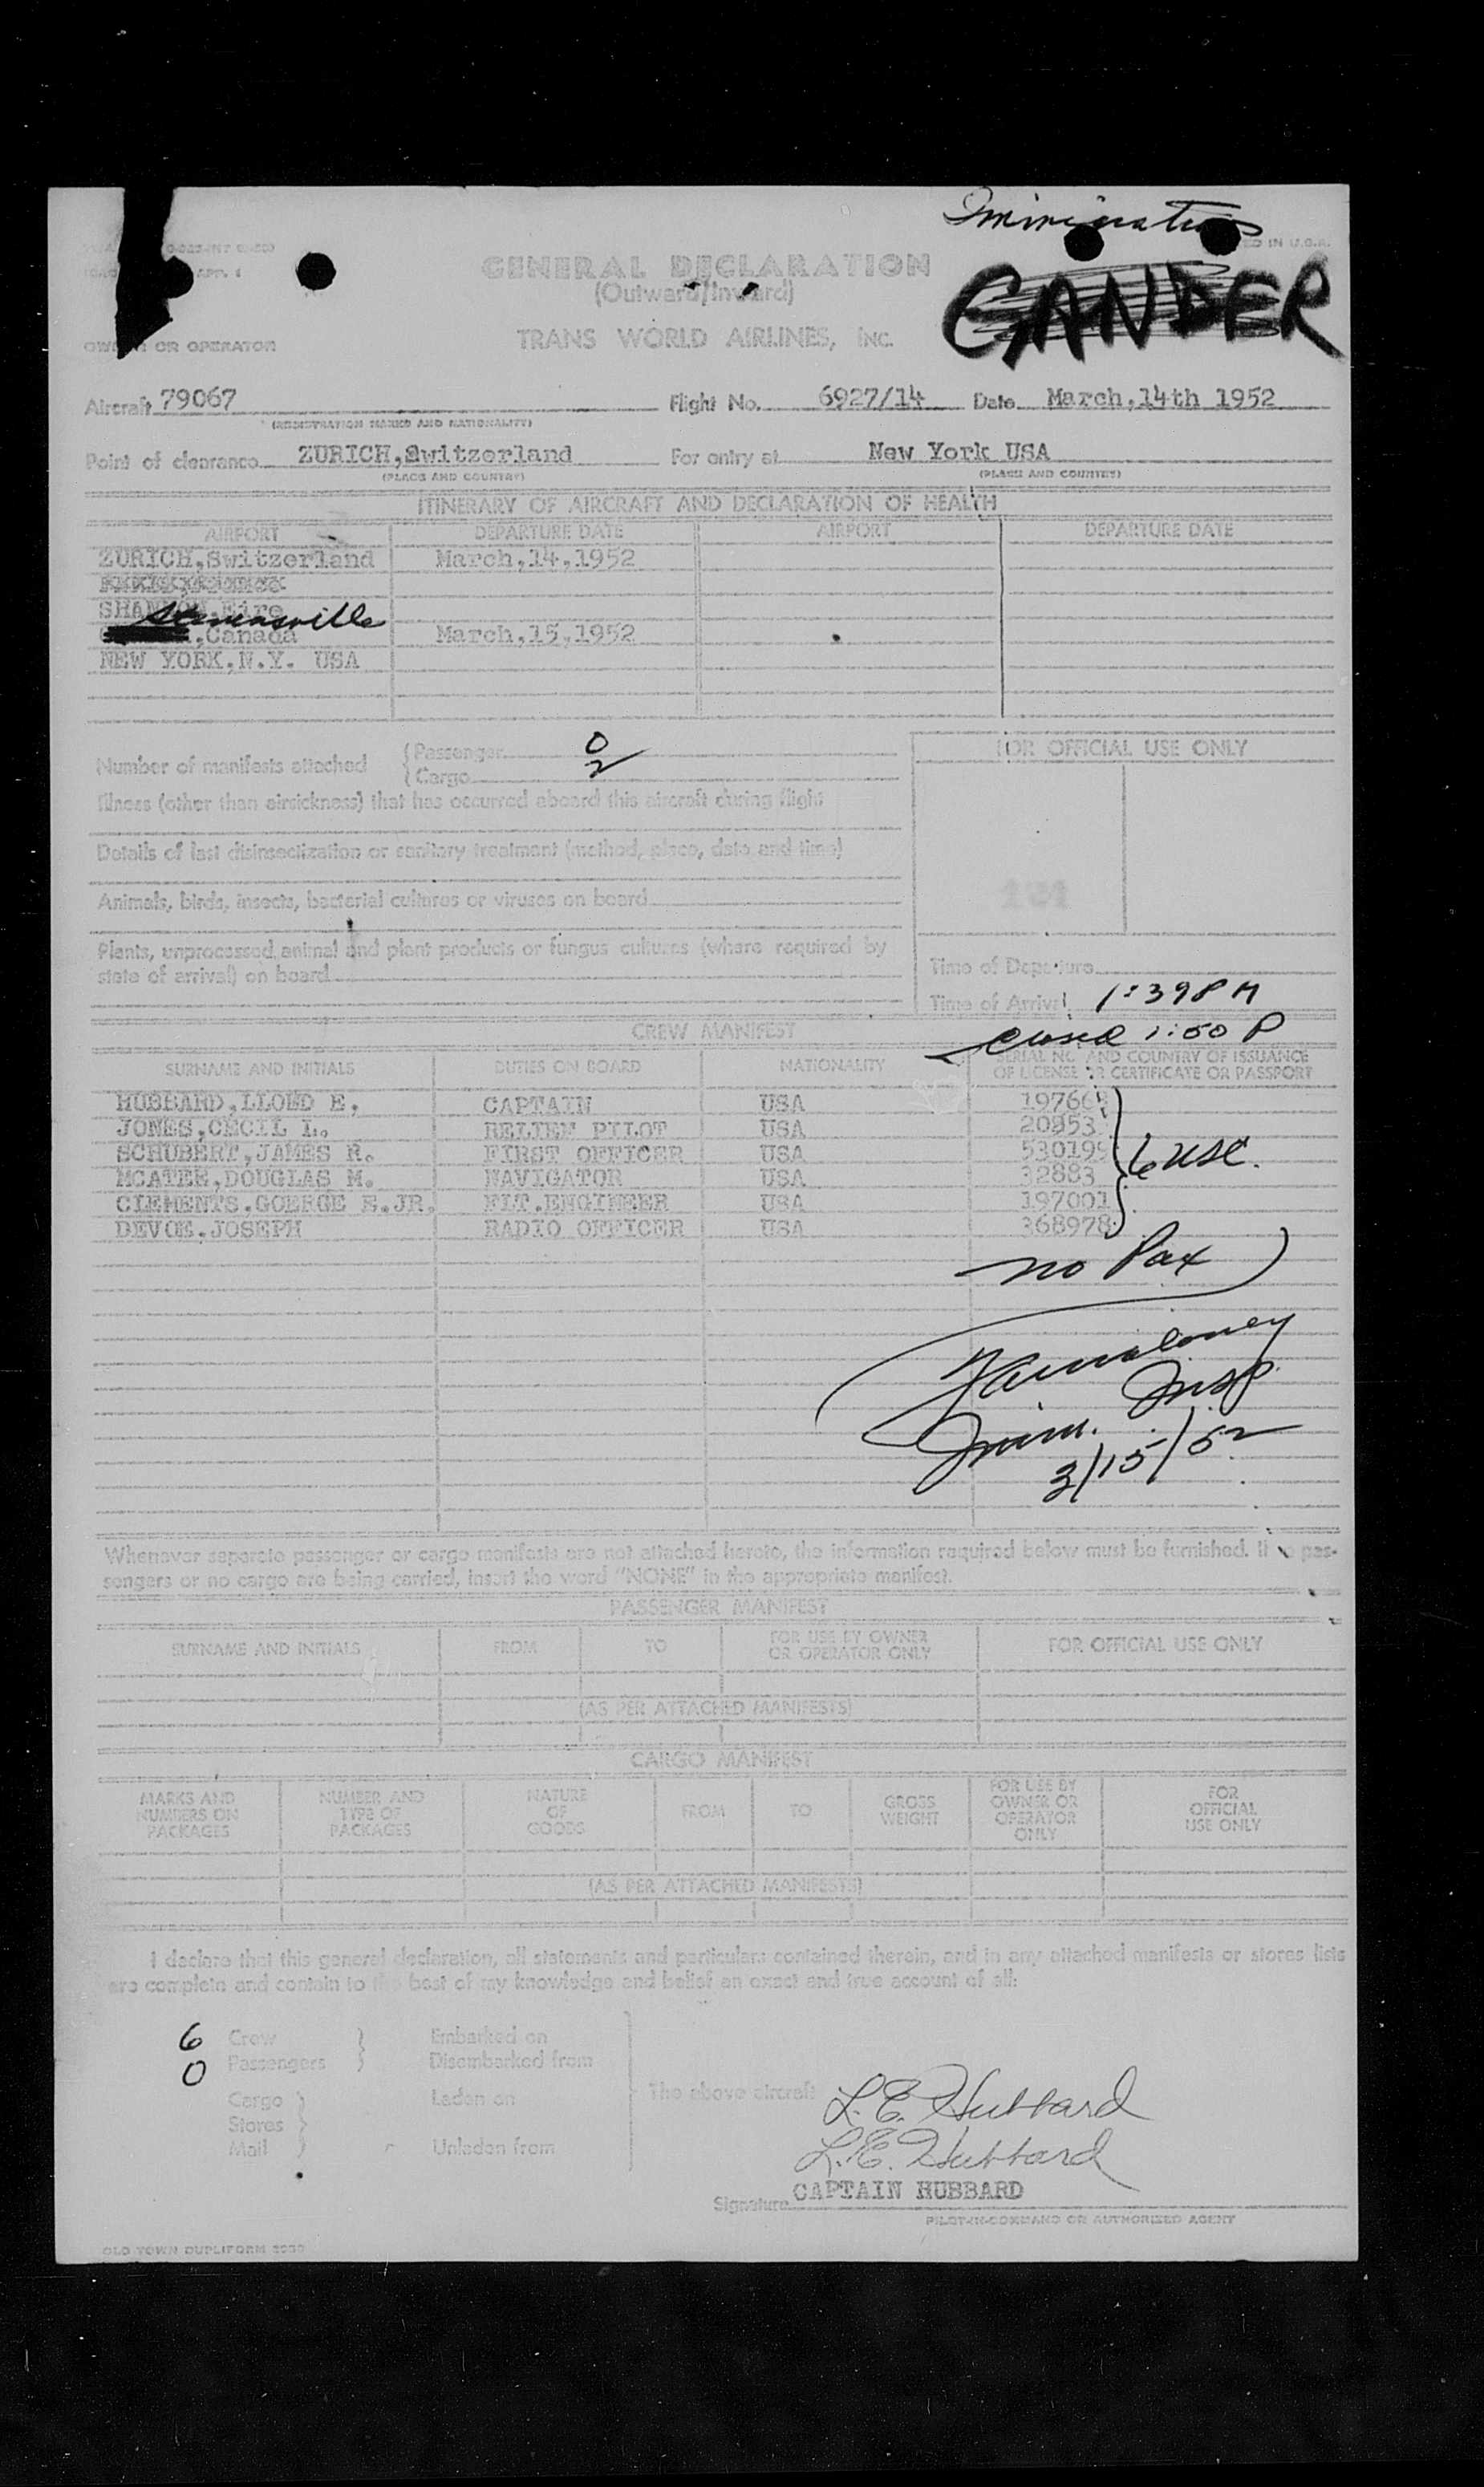 Immigration
GENERAL DECLARATION
(Outward/Inward)
GANDER
OR OPERATOR
TRANS WORLD AIRLINES, INC.
Aircraft 79067 Flight No. 6927/14 Date March,14th 1952
(REGISTRATION MARKS AND NATIONALITY)
Point of clearance ZURICH,Switzerland For entry at New York USA
(PLACE AND COUNTRY) (PLACE AND COUNTRY)
ITINERARY OF AIRCRAFT AND DECLARATION OF HEALTH
AIRPORT DEPARTURE DATE AIRPORT DEPARTURE DATE
ZURICH,Switzerland March,14,1952
SHANNON,Eire
Stevensville
,Canada March,15,1952
NEW YORK,N.Y. USA
Number of manifests attached
Passenger 0
Cargo 2
FOR OFFICIAL USE ONLY
Illness (other than airsickness) that has occurred aboard this aircraft during flight
Details of last disinsectization or sanitary treatment (method, place, date and time)
Animals, birds, insects, bacterial cultures or viruses on board
Plants, unprocessed animal and plant products or fungus cultures (where required by
state of arrival) on board
Time of Departure
Time of Arrival 1:39 PM
closed 1:50 P
CREW MANIFEST
SURNAME AND INITIALS DUTIES ON BOARD NATIONALITY SERIAL NO. AND COUNTRY OF ISSUANCE
OF LICENSE OR CERTIFICATE OR PASSPORT
HUBBARD,LLOYD E. CAPTAIN USA
JONES,CECIL L. RELIEF PILOT USA 20953
SCHUBERT,JAMES R. FIRST OFFICER USA 530199
MCATEE,DOUGLAS M. NAVIGATOR USA 32883
CLEMENTS.GOERGE E.JR. FLT.ENGINEER USA 197001
DEVOE.JOSEPH RADIO OFFICER USA 368978
6 USC.
no Pax
Insp.
Imm.
3/15/52
Whenever separate passenger or cargo manifests are not attached hereto, the information required below must be furnished. If no pas-
sengers or no cargo are being carried, insert the word "NONE" in the appropriate manifest.
PASSENGER MANIFEST
SURNAME AND INITIALS FROM TO FOR USE BY OWNER OR OPERATOR ONLY FOR OFFICIAL USE ONLY
(AS PER ATTACHED MANIFESTS)
CARGO MANIFEST
MARKS AND NUMBERS ON PACKAGES NUMBER AND TYPE OF PACKAGES NATURE OF GOODS FROM TO GROSS WEIGHT FOR USE BY OWNER OR OPERATOR ONLY FOR OFFICIAL USE ONLY
(AS PER ATTACHED MANIFESTS)
I declare that this general declaration, all statements and particulars contained therein, and in any attached manifests or stores lists
are complete and contain to the best of my knowledge and belief an exact and true account of all:
6 Crew Embarked on
0 Passengers Disembarked from
Cargo Laden on The above aircraft
Stores
Mail Unladen from
L.E. Hubbard
L.E. Hubbard
Signature CAPTAIN HUBBARD
PILOT-IN-COMMAND OR AUTHORIZED AGENT
OLD TOWN DUPLIFORM